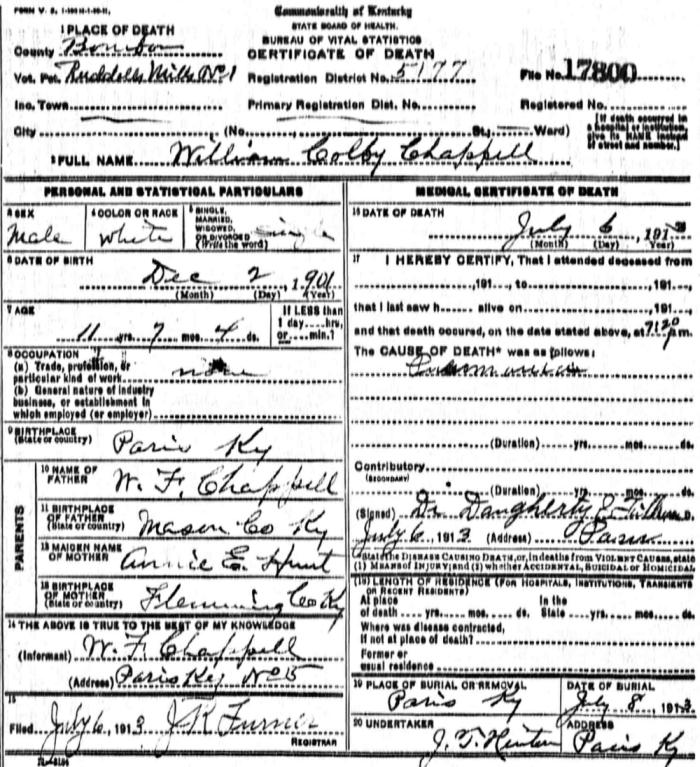 FORM V. S.
Commonwealth of Kentucky
STATE BOARD OF HEALTH.
BUREAU OF VITAL STATISTICS
CERTIFICATE OF DEATH
1 PLACE OF DEATH
County Bourbon
Vot. Pct. Ruddells Mills No 1
Registration District No. 5177
File No. 17800
Inc. Town
Primary Registration Dist. No.
Registered No.
City (No. St., Ward)
[If death occurred in a hospital or institution, give its NAME instead of street and number.]
2 FULL NAME William Colby Chappell
PERSONAL AND STATISTICAL PARTICULARS
3 SEX
Male
4 COLOR OR RACE
White
5 SINGLE, MARRIED, WIDOWED, OR DIVORCED (Write the word)
Single
6 DATE OF BIRTH
Dec 2, 1901
(Month) (Day) (Year)
7 AGE
11 yrs. 7 mos. 4 ds.
If LESS than 1 day hrs, or min.?
8 OCCUPATION
(a) Trade, profession, or particular kind of work none
(b) General nature of industry business, or establishment in which employed (or employer)
9 BIRTHPLACE (State or country)
Paris Ky
PARENTS
10 NAME OF FATHER
W. F. Chappell
11 BIRTHPLACE OF FATHER (State or country)
Mason Co Ky
12 MAIDEN NAME OF MOTHER
Annie E. Hunt
13 BIRTHPLACE OF MOTHER (State or country)
Flemming Co Ky
14 THE ABOVE IS TRUE TO THE BEST OF MY KNOWLEDGE
(Informant) W. F. Chappell
(Address) Paris Ky No 5
15
Filed July 6, 1913 J K Turner
REGISTRAR
MEDICAL CERTIFICATE OF DEATH
16 DATE OF DEATH
July 6, 191
(Month) (Day) (Year)
17 I HEREBY CERTIFY, That I attended deceased from
,191 , to ,191 ,
that I last saw h alive on ,191 ,
and that death occured, on the date stated above, at 7:20 pm.
The CAUSE OF DEATH* was as follows:
(Duration) yrs. mos. ds.
Contributory
(SECONDARY)
(Duration) yrs. mos. ds.
(Signed) Dr Daugherty
July 6, 1913 (Address) Paris
*State the DISEASE CAUSING DEATH, or, in deaths from VIOLENT CAUSES, state (1) MEANS OF INJURY; and (2) whether ACCIDENTAL, SUICIDAL or HOMICIDAL
18 LENGTH OF RESIDENCE (FOR HOSPITALS, INSTITUTIONS, TRANSIENTS OR RECENT RESIDENTS)
At place of death yrs. mos. ds. In the State yrs. mos. ds.
Where was disease contracted, if not at place of death?
Former or usual residence
19 PLACE OF BURIAL OR REMOVAL
Paris Ky
DATE OF BURIAL
July 8, 1913
20 UNDERTAKER
J. T. Hinton
ADDRESS
Paris Ky